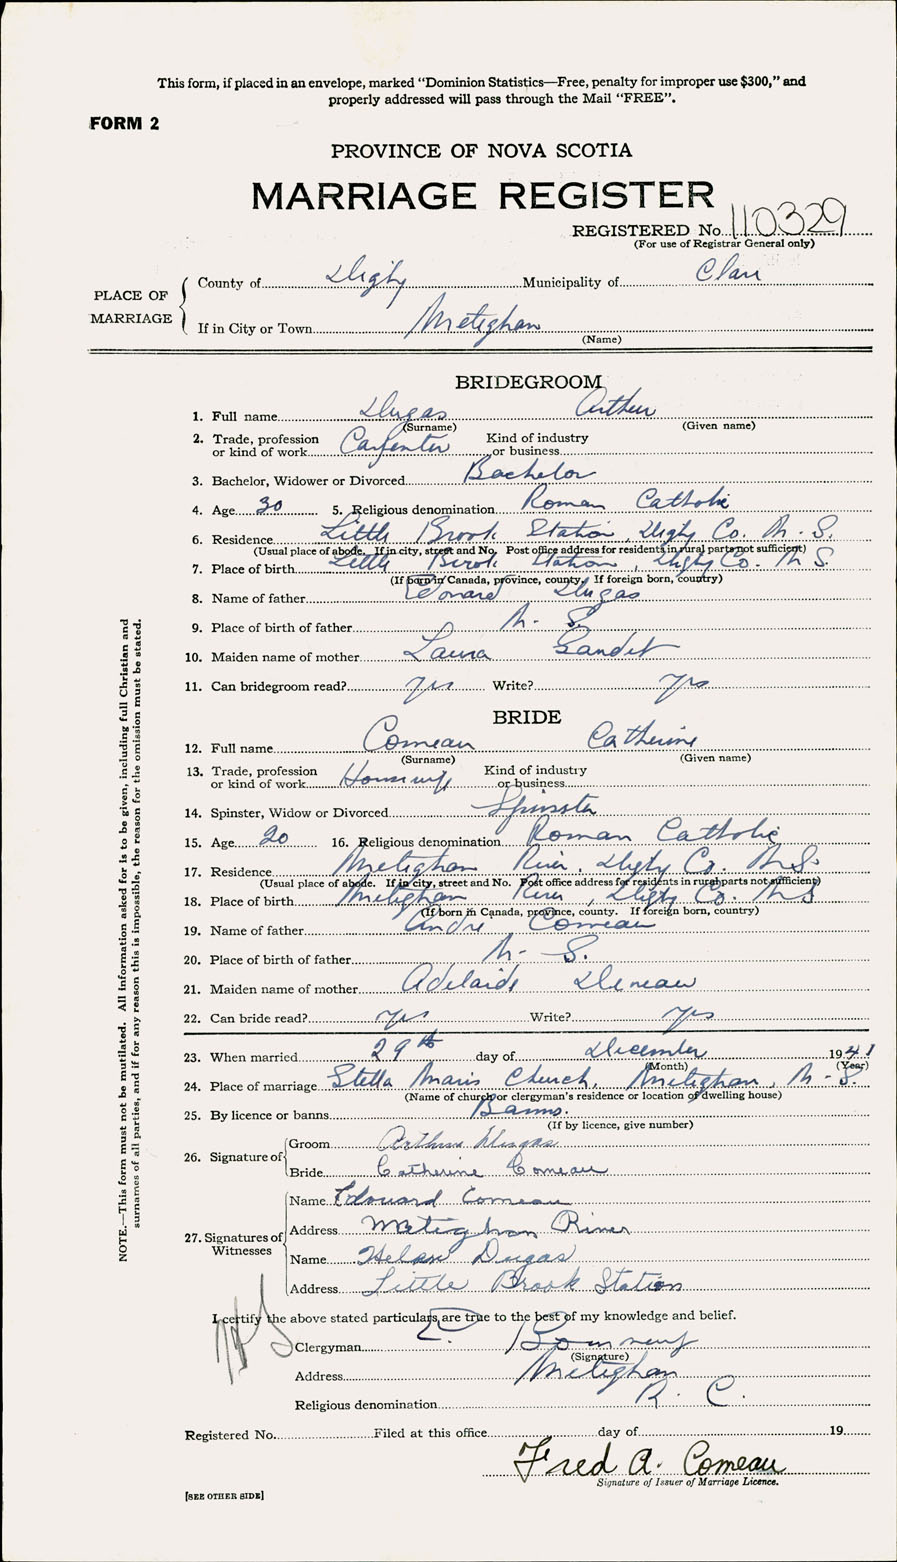 This form, if placed in an envelope, marked "Dominion Statistics—Free, penalty for improper use $300," and
properly addressed will pass through the Mail "FREE".
FORM 2
PROVINCE OF NOVA SCOTIA
MARRIAGE REGISTER
REGISTERED No. 110329
(For use of Registrar General only)
PLACE OF MARRIAGE
County of Digby Municipality of Clare
If in City or Town Meteghan
(Name)
BRIDEGROOM
1. Full name Dugas Arthur
(Surname) (Given name)
2. Trade, profession or kind of work Carpenter Kind of industry or business
3. Bachelor, Widower or Divorced Bachelor
4. Age 30 5. Religious denomination Roman Catholic
6. Residence Little Brook Station, Digby Co. N. S.
(Usual place of abode. If in city, street and No. Post office address for residents in rural parts not sufficient)
7. Place of birth Little Brook Station, Digby Co. N S.
(If born in Canada, province, county. If foreign born, country)
8. Name of father Dugas
9. Place of birth of father N. S.
10. Maiden name of mother Laura Gaudet
11. Can bridegroom read? yes Write? yes
BRIDE
12. Full name Comeau Catherine
(Surname) (Given name)
13. Trade, profession or kind of work Housewife Kind of industry or business
14. Spinster, Widow or Divorced Spinster
15. Age 20 16. Religious denomination Roman Catholic
17. Residence Meteghan River, Digby Co. N. S.
(Usual place of abode. If in city, street and No. Post office address for residents in rural parts not sufficient)
18. Place of birth Meteghan River, Digby Co. N S
(If born in Canada, province, county. If foreign born, country)
19. Name of father Andre Comeau
20. Place of birth of father N. S.
21. Maiden name of mother Adelaide Deveau
22. Can bride read? yes Write? yes
23. When married 29th day of December 1941
(Month) (Year)
24. Place of marriage Stella Maris Church, Meteghan, N. S.
(Name of church or clergyman's residence or location of dwelling house)
25. By licence or banns Banns.
(If by licence, give number)
26. Signature of
Groom Arthur Dugas
Bride Catherine Comeau
27. Signatures of Witnesses
Name Edouard Comeau
Address Meteghan River
Name Helen Dugas
Address Little Brook Station
I certify the above stated particulars are true to the best of my knowledge and belief.
Clergyman
(Signature)
Address Meteghan
Religious denomination R. C.
Registered No. Filed at this office day of 19
Fred A. Comeau
Signature of Issuer of Marriage Licence.
[SEE OTHER SIDE]
NOTE.—This form must not be mutilated. All information asked for is to be given, including full Christian and
surnames of all parties, and if for any reason this is impossible, the reason for the omission must be stated.